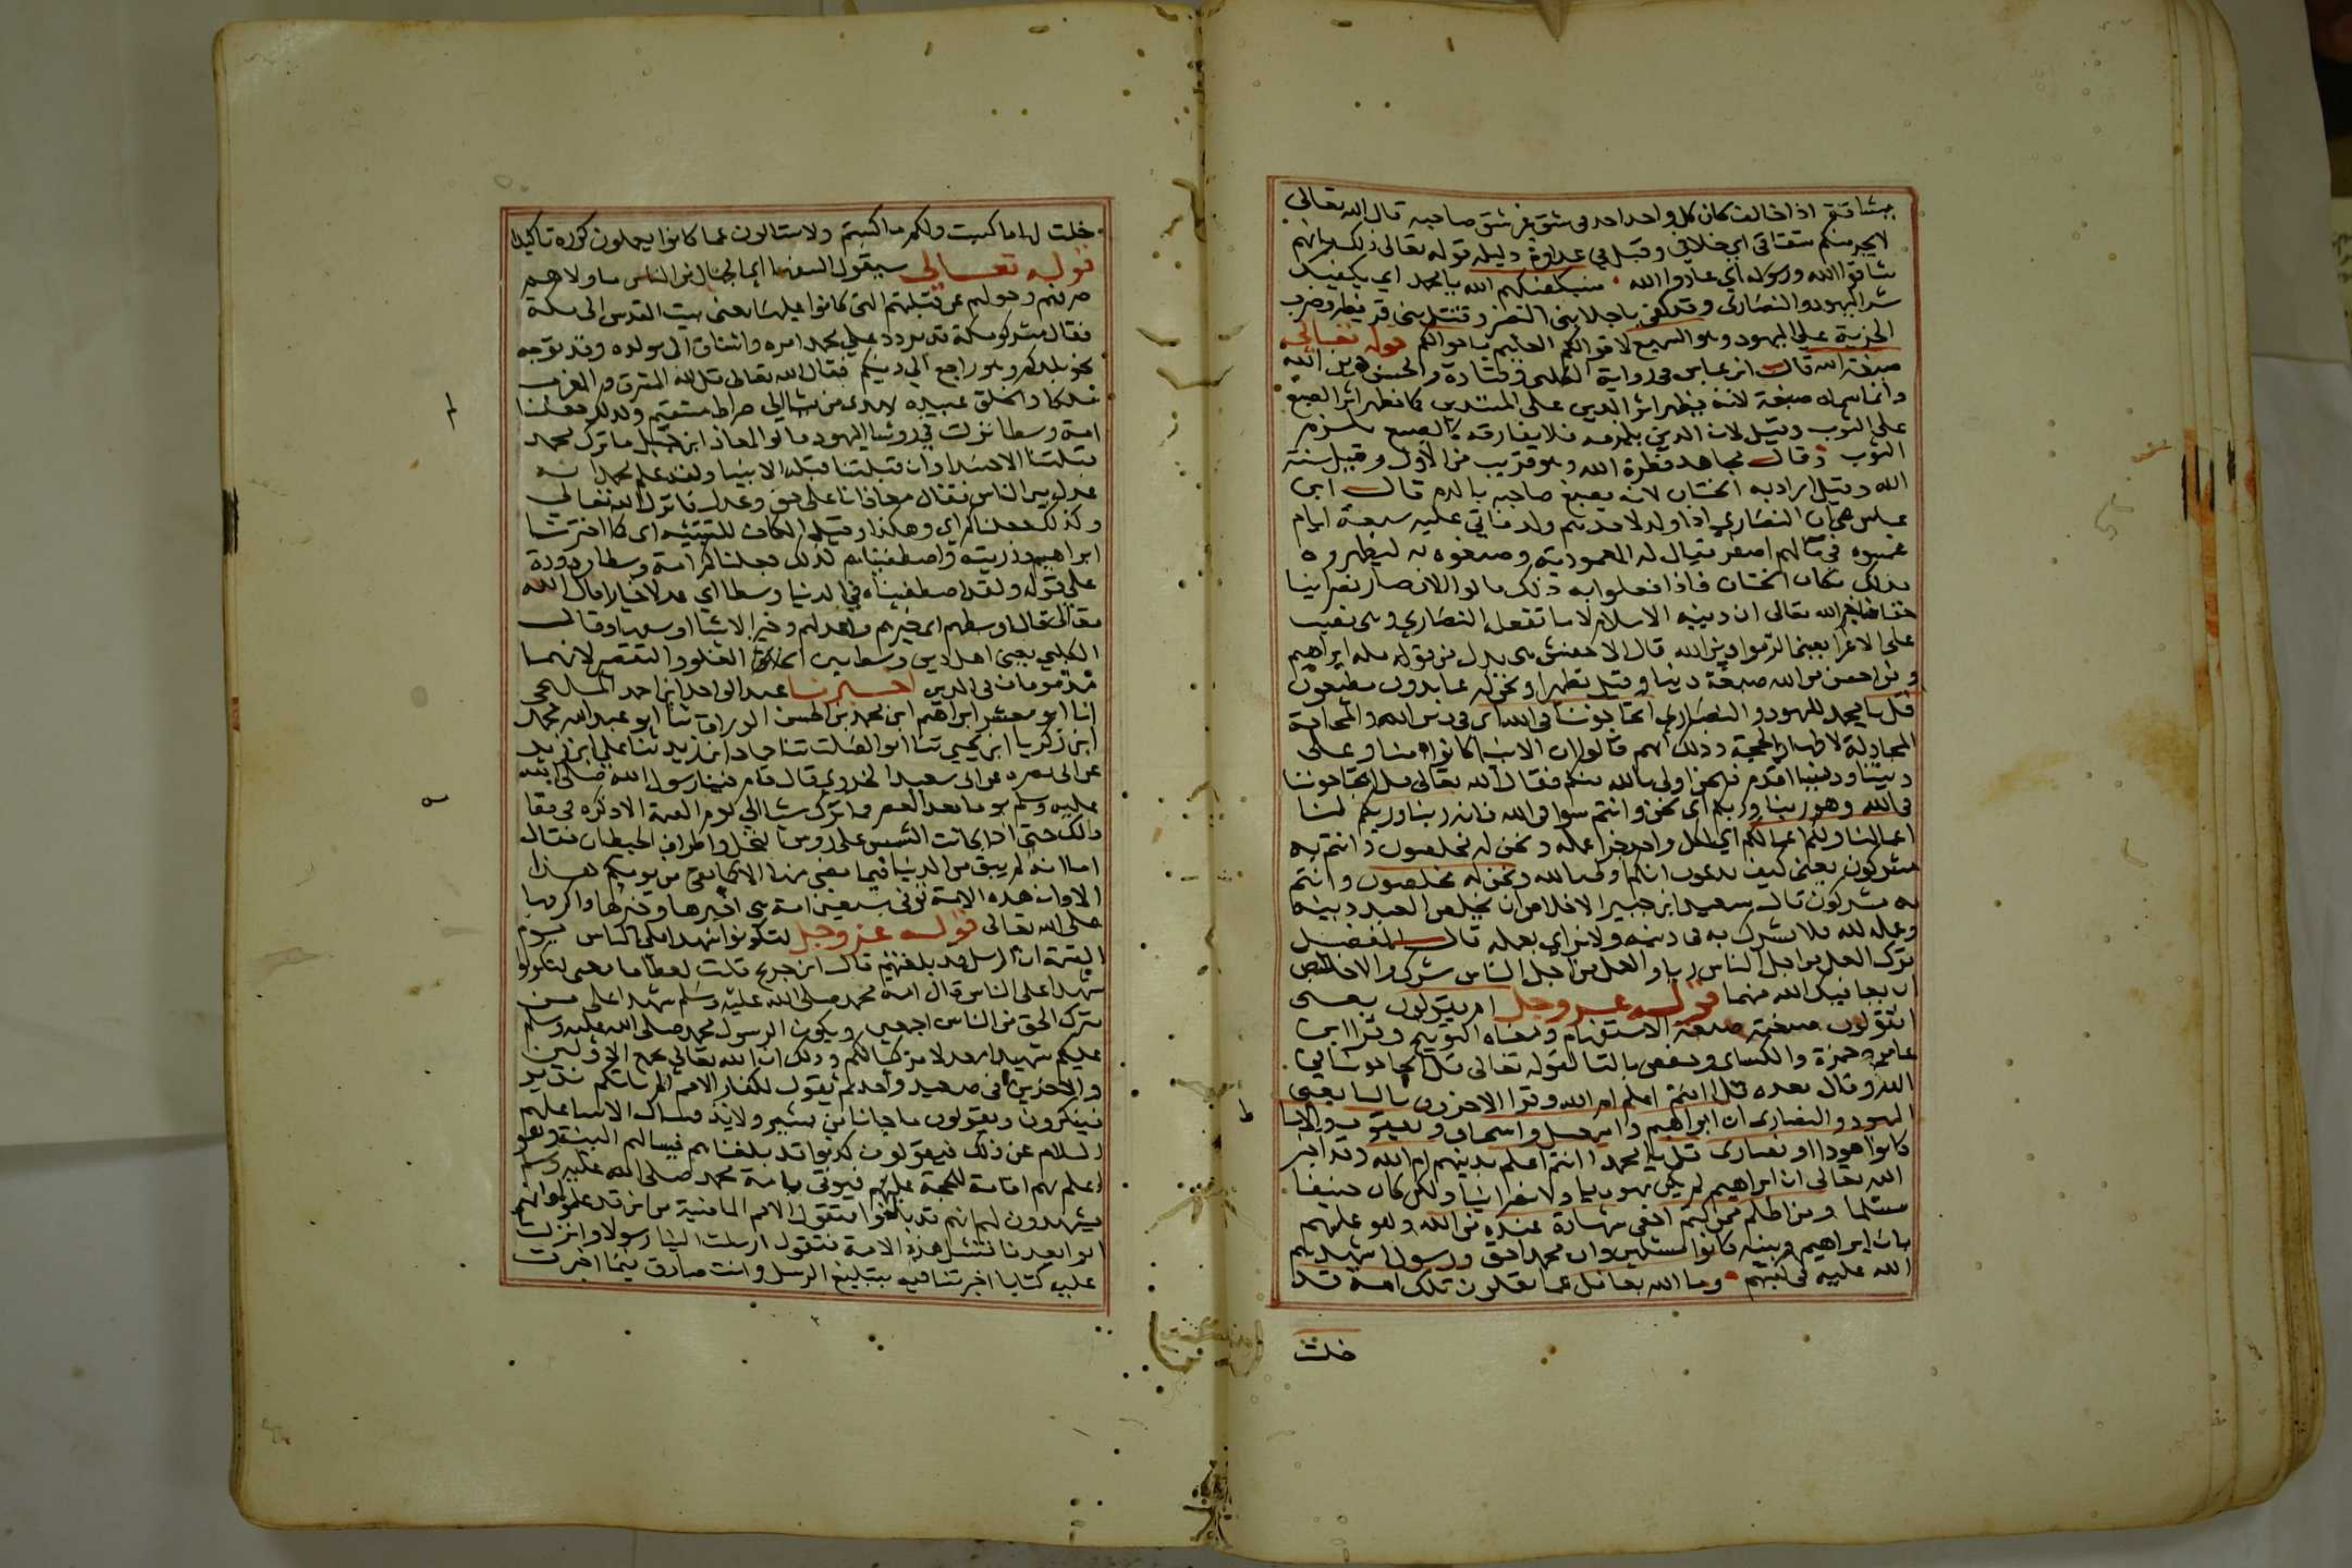 مشاقة اذا خالف كان كل واحد اخذ فى شق غير شق صاحبه قال الله تعالى
لا يجرمنكم شقاقى اي خلافى وقيل فى عداوة دليله قوله تعالى ذلك بانهم
شاقوا الله ورسوله اي عادوا الله فسيكفيكهم الله يا محمد اي يكفيك
شر اليهود والنصارى وقد كفى باجلا بنى النضير وقتل بنى قريظة وضرب
الجزية على اليهود وهو السميع لاقوالكم العليم باحوالكم قوله تعالى
صبغة الله قال ابن عباس فى رواية الكلبى وقتادة والحسن دين الله
وانما سماه صبغة لانه يظهر اثر الدين على المتدين كما يظهر اثر الصبغ
على الثوب وقيل لان الدين يلزمه فلا يفارقه كالصبغ يلزم
الثوب وقال مجاهد فطرة الله وهو قريب من الاول وقيل سنة
الله وقيل اراد به الختان لانه يصبغ صاحبه بالدم قال ابن
عباس هي ان النصارى اذا ولد لاحدهم ولد فاتى عليه سبعة ايام
غمسوه فى ما لهم اصفر يقال له المعمودية وصبغوه به ليطهروه
بذلك مكان الختان فاذا فعلوا به ذلك قالوا الان صار نصرانيا
حقا فاخبر الله تعالى ان دينه الاسلام لا ما تفعله النصارى وهى نصب
على الاغرا يعنى الزموا دين الله قال الاخفش هى بدل من قوله مله ابراهيم
ومن احسن من الله صبغة دينا وقيل تطهيرا ونحن له عابدون مطيعون
قل يا محمد لليهود والنصارى اتحاجوننا فى الله اى فى دين الله والمحاجة
المجادلة لاظهار الحجة وذلك انهم قالوا ان الانبيا كانوا منا وعلى
ديننا وديننا اقدم فنحن اولى بالله منكم فقال الله تعالى قل اتحاجوننا
فى الله وهو ربنا وربكم اى نحن وانتم سوا فى الله فانه ربنا وربكم لنا
اعمالنا ولكم اعمالكم اي لكل واحد جزا عمله ونحن له مخلصون وانتم به
مشركون يعنى كيف تدعون انكم اولى بالله ونحن له مخلصون وانتم
به مشركون قال سعيد ابن جبير الاخلاص ان يخلص العبد دينه
وعمله لله فلا يشرك به فى دينه ولا يراي بعمله قال الفضيل
ترك العمل من اجل الناس ريا والعمل من اجل الناس شرك والاخلاص
ان يعافيك الله منهما قوله عز وجل ام يقولون يعنى
اتقولون صيغته صيغة الاستفهام ومعناه التوبيخ وقرا ابن
عامر وحمزة والكساى وحفص بالتا لقوله تعالى قل اتحاجوننا في
الله وقال بعده قل اانتم اعلم ام الله وقرا الاخرون باليا يعنى
اليهود والنصارى ان ابراهيم واسمعيل واسحاق ويعقوب والاسباط
كانوا هودا او نصارى قل يا محمد اانتم اعلم بدينهم ام الله وقد اخبر
الله تعالى ان ابراهيم لم يكن يهوديا ولا نصرانيا ولكن كان حنيفا
مسلما ومن اظلم ممن كتم اخفى شهادة عنده من الله وهو علمهم
بان ابراهيم وبنيه كانوا مسلمين وان محمدا حق ورسول اشهدهم
الله عليه فى كتبهم وما الله بغافل عما تعملون تلك امة قد
خلت
خلت لها ما كسبت ولكم ما كسبتم ولا تسالون عما كانوا يعملون كرره تاكيدا
قوله تعالى سيقول السفها اي الجهال من الناس ما ولاهم
صرفهم وحولهم عن قبلتهم التى كانوا عليها يعنى بيت المقدس الى مكة
فقال مشركو مكة قد تردد على محمد امره واشتاق الى مولده وقد توجه
نحو بلدكم وهو راجع الي دينكم فقال الله تعالى قل لله المشرق والمغرب
ملكا والخلق عبيده يهدى من يشا الي صراط مستقيم وكذلك جعلناكم
امة وسطا نزلت في رؤسا اليهود قالوا لمعاذ ابن جبل ما ترك محمد
قبلتنا الا حسدا وان قبلتنا قبلة الانبيا ولقد علم محمد انا
عدل بين الناس فقال معاذ انا على حق وعدل فانزل الله تعالى
وكذلك جعلناكم اي وهكذا وقيل الكاف للتشبيه اى كما اخترنا
ابراهيم وذريته واصطفيناهم كذلك جعلناكم امة وسطا مردودة
على قوله ولقد اصطفيناه في الدنيا وسطا اي عدلا خيارا قال الله
تعالى قال اوسطهم اى خيرهم واعدلهم وخير الاشيا اوسطها وقال
الكلبي يعنى اهل دين وسط بين الغلو والتقصير لانهما
مذمومان فى الدين اخبرنا عبد الواحد ابن احمد المليحى
انا ابو معشر ابراهيم ابن محمد بن الحسن الوراق ثنا ابو عبد الله محمد
ابن زكريا ابن يحيى ثنا ابو الصلت ثنا حماد ابن زيد ثنا على ابن زيد
عن ابى نضرة عن ابى سعيد الخدرى قال قام فينا رسول الله صلى الله
عليه وسلم يوما بعد العصر فما ترك شيا الي يوم القيمة الا ذكره فى مقامه
ذالك حتى اذا كانت الشمس على روس النخل واطراف الحيطان فقال
اما انه لم يبق من الدنيا فيما مضى منها الا كما بقى من يومكم هذا
الا وان هذه الامة توفى سبعين امة هى اخيرها وخيرها واكرمها
على الله تعالى قوله عز وجل لتكونوا شهدا على الناس يوم
القيمة ان الرسل قد بلغتهم قال ابن جريج قلت لعطا ما معنى لتكونوا
شهدا على الناس قال امة محمد صلى الله عليه وسلم شهدا على من
ترك الحق من الناس اجمعين ويكون الرسول محمد صلى الله عليه وسلم
عليكم شهيدا معدلا مزكيا لكم وذلك ان الله تعالى يجمع الاولين
والاخرين فى صعيد واحد ثم يقول لكفار الامم الم ياتكم نذير
فينكرون ويقولون ما جانا من بشير ولا نذير فيسال الانبيا عليهم
السلام عن ذلك فيقولون كذبوا قد بلغناهم فيسالهم البينة وهو
اعلم بهم اقامة للحجة عليهم فيوتى بامة محمد صلى الله عليه وسلم
فيشهدون لهم انهم قد بلغوا فتقول الامم الماضية من اين قد علموا وانهم
اتوا بعدنا فتسل هذه الامة فتقول ارسلت الينا رسولا وانزلت
عليه كتابا اخبرتنا فيه ببتليغ الرسل وانت صادق فيما اخبرت